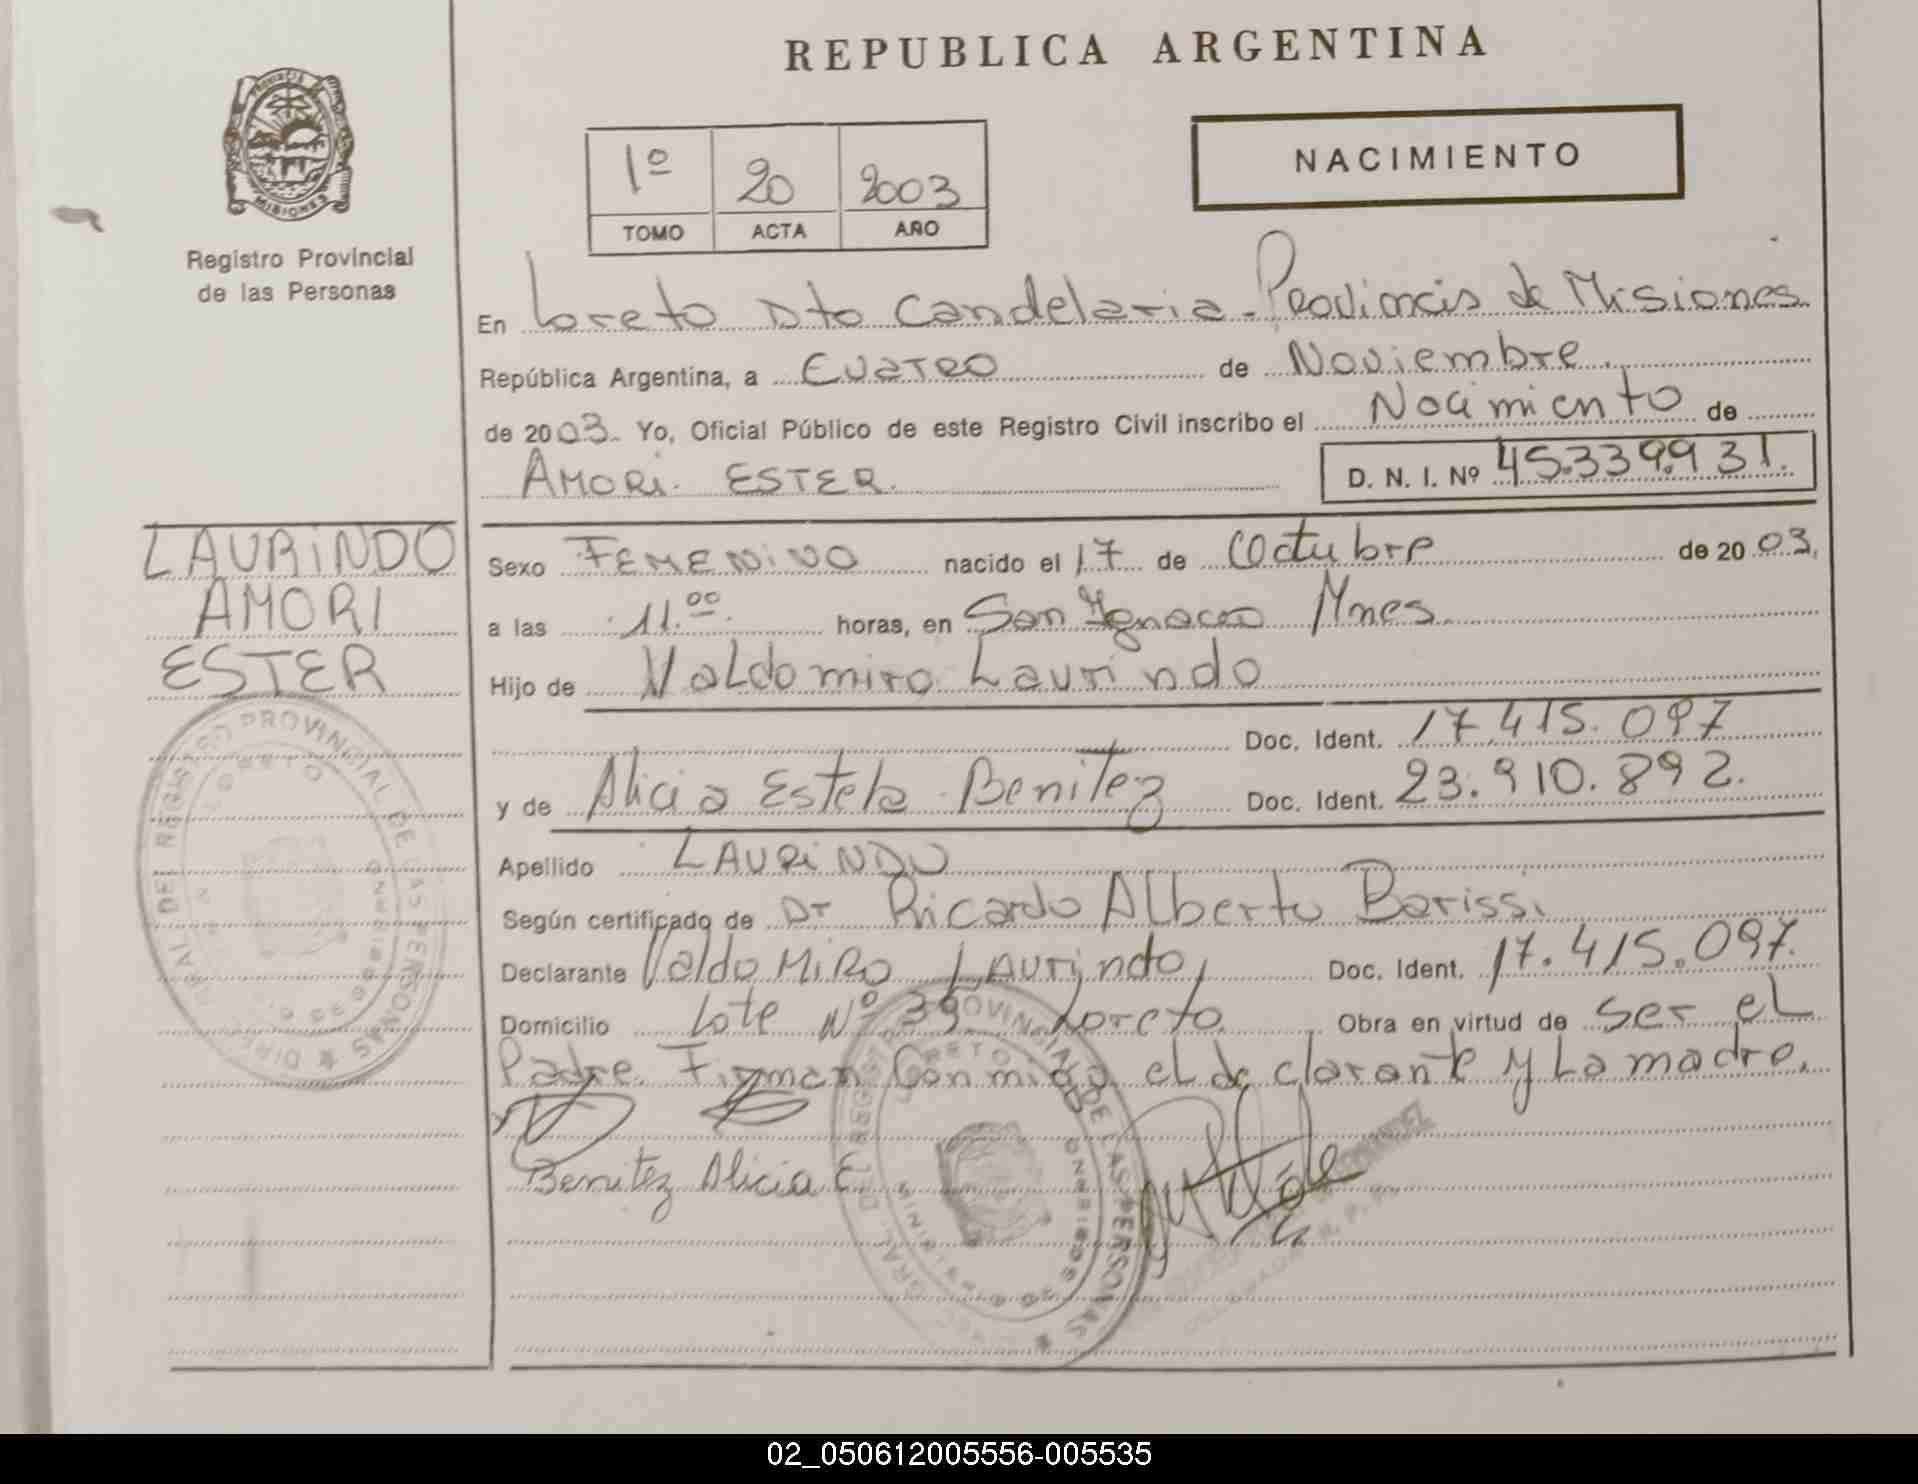 REPUBLICA ARGENTINA
PROVINCIA DE MISIONES
Registro Provincial
de las Personas
1º 20 2003
TOMO ACTA AÑO
NACIMIENTO
En Loreto Dto Candelaria - Provincia de Misiones
República Argentina, a Cuatro de Noviembre.
de 2003. Yo, Oficial Público de este Registro Civil inscribo el Nacimiento de
AMORI ESTER. D. N. I. Nº 45.339.931.
LAURINDO
AMORI
ESTER
Sexo FEMENINO nacido el 17 de Octubre de 2003,
a las 11.00 horas, en San Ignacio Mnes.
Hijo de Valdomiro Laurindo
Doc. Ident. 17.415.097
y de Alicia Estela Benitez Doc. Ident. 23.910.892.
Apellido LAURINDO
Según certificado de Dr Ricardo Alberto Barissi
Declarante Valdo MiRO Laurindo, Doc. Ident. 17.415.097.
Domicilio Lote Nº 39 Loreto Obra en virtud de ser el
Padre. Firman Conmigo el declarante y La madre.
Benitez Alicia E.
REGISTRO PROVINCIAL DE LAS PERSONAS
LORETO
REGISTRO PROVINCIAL DE LAS PERSONAS
LORETO
02_050612005556-005535